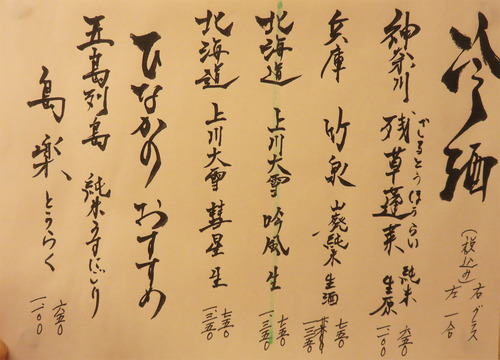 冷酒
(税込み) 右 グラス
左 一合
神奈川 残草蓬莱 純米 生原
ざるそうほうらい
六五〇
一一〇〇
兵庫 竹泉 山廃純米 生酒
七五〇
北海道 上川大雪 吟風 生
七五〇
一、三五〇
北海道 上川大雪 彗星 生
七五〇
一、三五〇
ひなかの おすすめ
五島列島 純米うすにごり
島楽、とうらく
六五〇
一、一〇〇